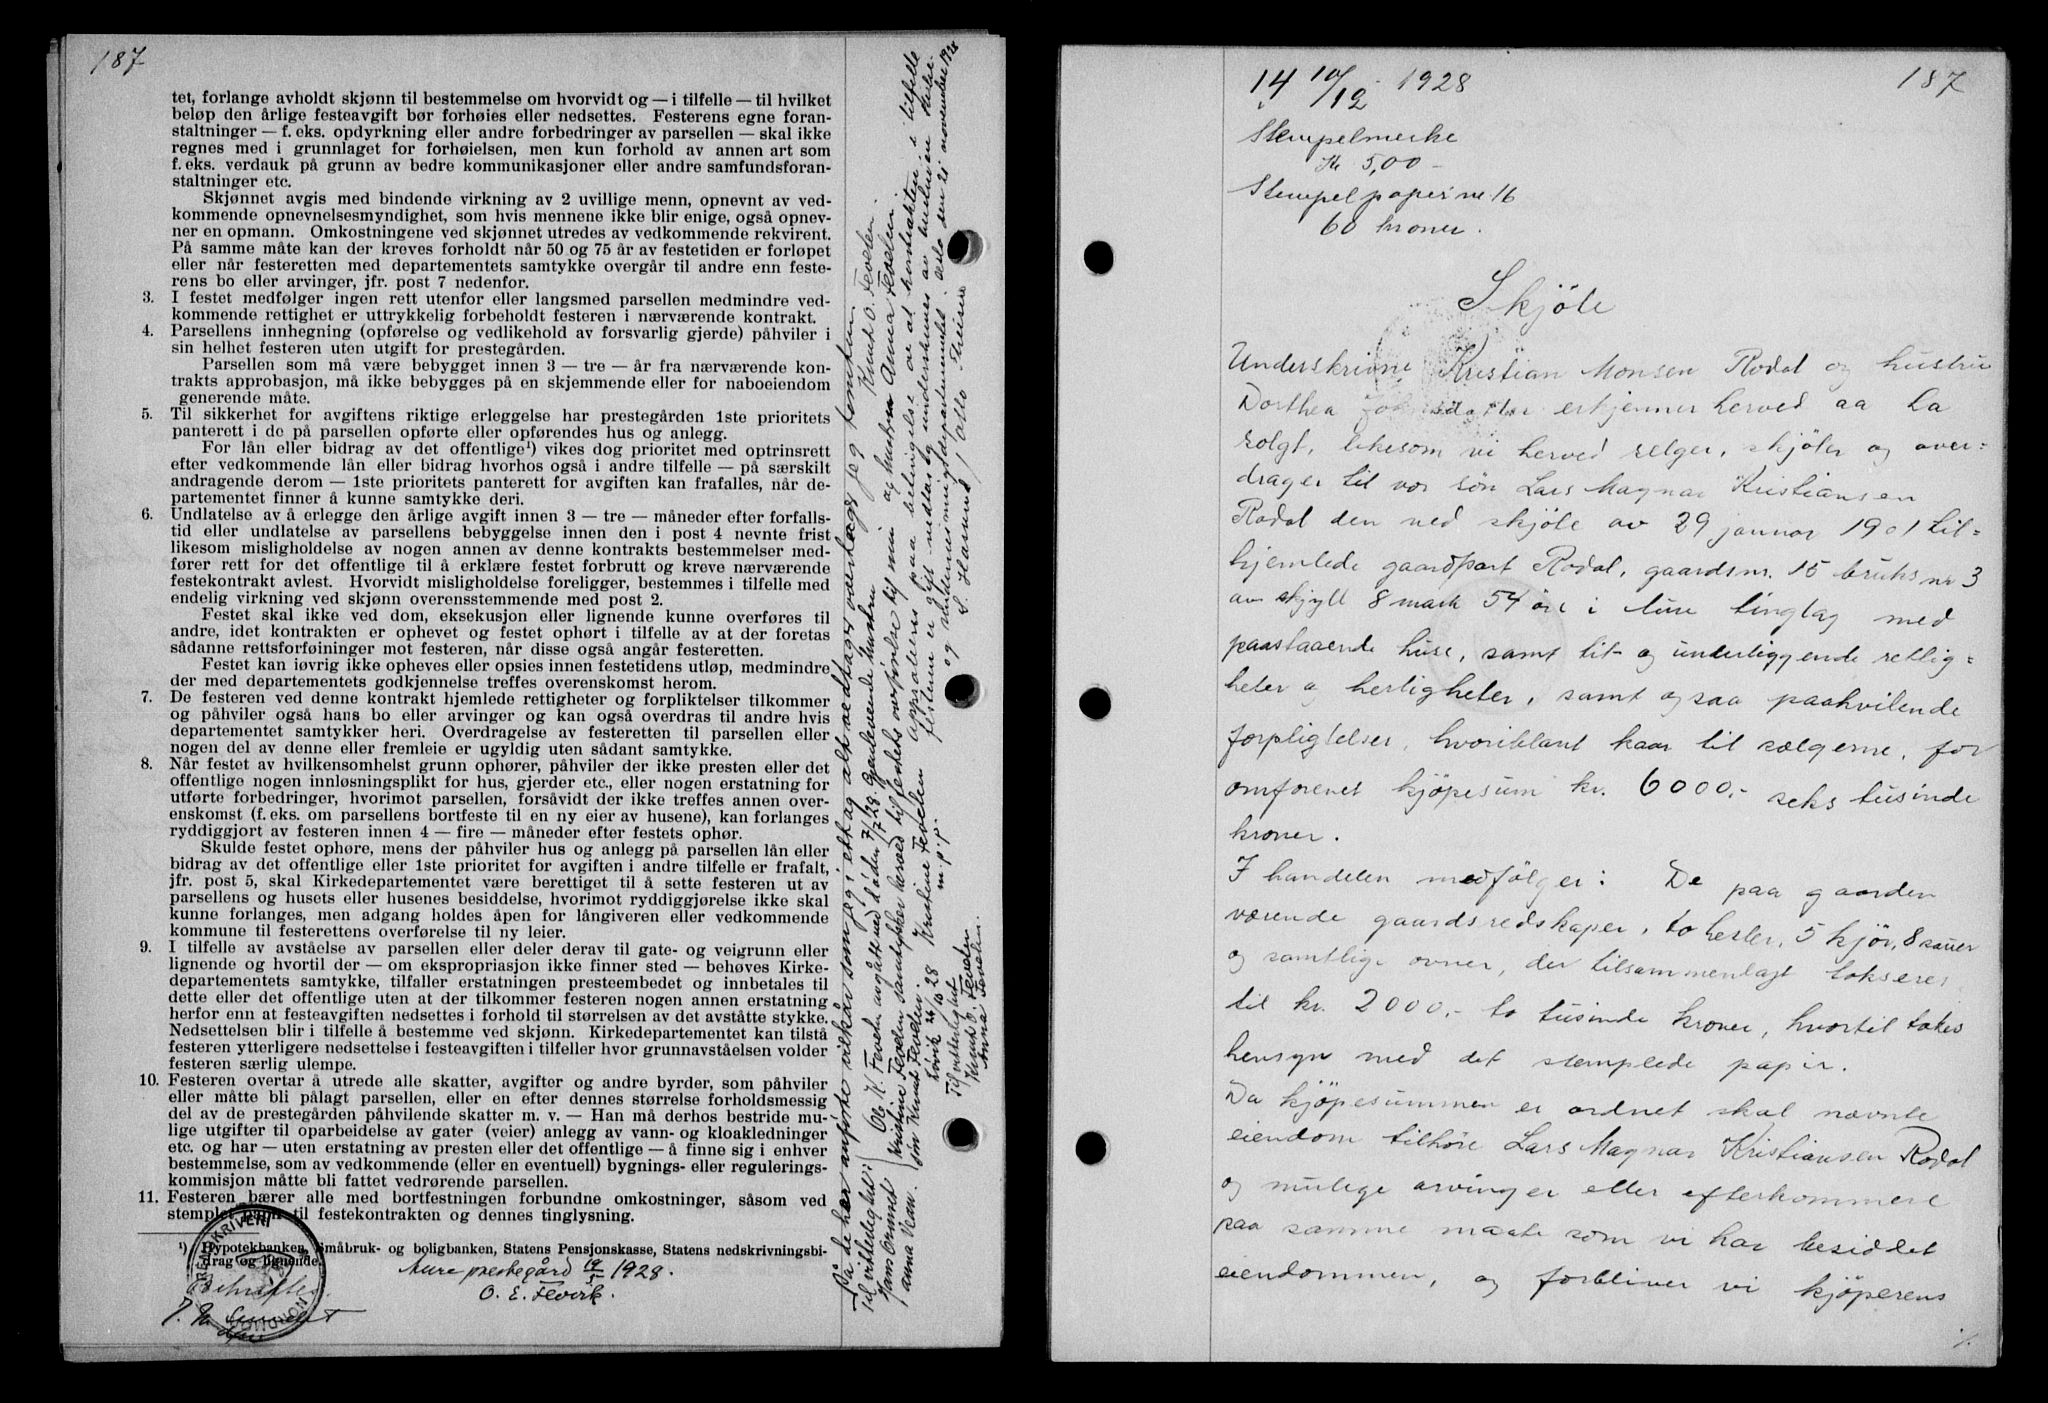 187
tet, forlange avholdt skjønn til bestemmelse om hvorvidt og — i tilfelle — til hvilket
beløp den årlige festeavgift bør forhøies eller nedsettes. Festerens egne foran-
staltninger — f. eks. opdyrkning eller andre forbedringer av parsellen — skal ikke
regnes med i grunnlaget for forhøielsen, men kun forhold av annen art som
f. eks. verdauk på grunn av bedre kommunikasjoner eller andre samfundsforan-
staltninger etc.
Skjønnet avgis med bindende virkning av 2 uvillige menn, opnevnt av ved-
kommende opnevnelsesmyndighet, som hvis mennene ikke blir enige, også opnev-
ner en opmann. Omkostningene ved skjønnet utredes av vedkommende rekvirent.
På samme måte kan der kreves forholdt når 50 og 75 år av festetiden er forløpet
eller når festeretten med departementets samtykke overgår til andre enn feste-
rens bo eller arvinger, jfr. post 7 nedenfor.
3. I festet medfølger ingen rett utenfor eller langsmed parsellen medmindre ved-
kommende rettighet er uttrykkelig forbeholdt festeren i nærværende kontrakt.
4. Parsellens innhegning (opførelse og vedlikehold av forsvarlig gjerde) påhviler i
sin helhet festeren uten utgift for prestegården.
Parsellen som må være bebygget innen 3 — tre — år fra nærværende kon-
trakts approbasjon, må ikke bebygges på en skjemmende eller for naboeiendom
generende måte.
5. Til sikkerhet for avgiftens riktige erleggelse har prestegården 1ste prioritets
panterett i de på parsellen opførte eller opførendes hus og anlegg.
For lån eller bidrag av det offentlige¹) vikes dog prioritet med optrinsrett
efter vedkommende lån eller bidrag hvorhos også i andre tilfelle — på særskilt
andragende derom — 1ste prioritets panterett for avgiften kan frafalles, når de-
partementet finner å kunne samtykke deri.
6. Undlatelse av å erlegge den årlige avgift innen 3 — tre — måneder efter forfalls-
tid eller undlatelse av parsellens bebyggelse innen den i post 4 nevnte frist
likesom misligholdelse av nogen annen av denne kontrakts bestemmelser med-
fører rett for det offentlige til å erklære festet forbrutt og kreve nærværende
festekontrakt avlest. Hvorvidt misligholdelse foreligger, bestemmes i tilfelle med
endelig virkning ved skjønn overensstemmende med post 2.
Festet skal ikke ved dom, eksekusjon eller lignende kunne overføres til
andre, idet kontrakten er ophevet og festet ophørt i tilfelle av at der foretas
sådanne rettsforføininger mot festeren, når disse også angår festeretten.
Festet kan iøvrig ikke opheves eller opsies innen festetidens utløp, medmindre
der med departementets godkjennelse treffes overenskomst herom.
7. De festeren ved denne kontrakt hjemlede rettigheter og forpliktelser tilkommer
og påhviler også hans bo eller arvinger og kan også overdras til andre hvis
departementet samtykker heri. Overdragelse av festeretten til parsellen eller
nogen del av denne eller fremleie er ugyldig uten sådant samtykke.
8. Når festet av hvilkensomhelst grunn ophører, påhviler der ikke presten eller det
offentlige nogen innløsningsplikt for hus, gjerder etc., eller nogen erstatning for
utførte forbedringer, hvorimot parsellen, forsåvidt der ikke treffes annen over-
enskomst (f. eks. om parsellens bortfeste til en ny eier av husene), kan forlanges
ryddiggjort av festeren innen 4 — fire — måneder efter festets ophør.
Skulde festet ophøre, mens der påhviler hus og anlegg på parsellen lån eller
bidrag av det offentlige eller 1ste prioritet for avgiften i andre tilfelle er frafalt,
jfr. post 5, skal Kirkedepartementet være berettiget til å sette festeren ut av
parsellens og husets eller husenes besiddelse, hvorimot ryddiggjørelse ikke skal
kunne forlanges, men adgang holdes åpen for långiveren eller vedkommende
kommune til festerettens overførelse til ny leier.
9. I tilfelle av avståelse av parsellen eller deler derav til gate- og veigrunn eller
lignende og hvortil der — om ekspropriasjon ikke finner sted — behøves Kirke-
departementets samtykke, tilfaller erstatningen presteembedet og innbetales til
dette eller det offentlige uten at der tilkommer festeren nogen annen erstatning
herfor enn at festeavgiften nedsettes i forhold til størrelsen av det avståtte stykke.
Nedsettelsen blir i tilfelle å bestemme ved skjønn. Kirkedepartementet kan tilstå
festeren ytterligere nedsettelse i festeavgiften i tilfeller hvor grunnavståelsen volder
festeren særlig ulempe.
10. Festeren overtar å utrede alle skatter, avgifter og andre byrder, som påhviler
eller måtte bli pålagt parsellen, eller en efter dennes størrelse forholdsmessig
del av de prestegården påhvilende skatter m. v. — Han må derhos bestride mu-
lige utgifter til oparbeidelse av gater (veier) anlegg av vann- og kloakledninger
etc. og har — uten erstatning av presten eller det offentlige — å finne sig i enhver
bestemmelse, som av vedkommende (eller en eventuell) bygnings- eller regulerings-
kommisjon måtte bli fattet vedrørende parsellen.
11. Festeren bærer alle med bortfestningen forbundne omkostninger, såsom ved
stemplet papir til festekontrakten og dennes tinglysning.
¹) Hypotekbanken, Småbruk- og boligbanken, Statens Pensjonskasse, Statens nedskrivningsbi-
drag og lignende.
Aure prestegård 19/5 1928.
O. E. Flevirk.
Bekræftes
SORENSKRIVEREN I NORDMØR
På de her anførte vilkår som jeg i ett og alt vedtager overtager jeg tomten.
Knut O. Fevelen.
Til vitterlighet:
Ole K. Fevelen avgått ved døden 7/7 28. Gjenlevende hustru
Kristine Fevelen samtykker herved til festets overførelse til min
sön Knut Fevelen. og hustru Anna Fevelen.
Lövik 26/10 28 Kristine Fevelen
m. p. p.
Til vitterlighet
Knut O. Fevelen
Anna Fevelen.
approberes paa betingelse av at kontrakten i tilfelle
festeren er gift vedtas og underskrives av hustruen
og undervisningsdepartementet. Oslo den 21 november 1928
187
14 10/12 - 1928
Stempelmerke
Kr 5,00 -
Stempelpapir nr 16
60 kroner.
Skjöte
Underskrivne Kristian Monsen Rodal og hustru
Dorthea Johnsdatter erkjenner herved aa ha
solgt, likesom vi herved selger, skjöter og over-
drager til vor sön Lars Magnar Kristiansen
Rodal den ved skjöte av 29 januar 1901 til-
hjemlede gaardpart Rodal, gaardsnr. 15 bruksnr 3
av skyll 8 mark 54 öre i Aure tinglag med
paastaaende huse, samt til- og underliggende rettig=
heter og herligheter, samt ogsaa paahvilende
forpligtelser, hvoriblant kaar til sælgerne, for
omforenet kjöpesum kr. 6000.- seks tusinde
kroner.
I handelen medfölger: De paa gaarden
værende gaardsredskaper, to hester, 5 kjör, 8 sauer
og samtlige ovner, der tilsammenlagt takseres
til kr. 2000.- to tusinde kroner, hvortil takes
hensyn med det stemplede papir.
Da kjöpesummen er ordnet skal nævnte
eiendom tilhöre Lars Magnar Kristiansen Rodal
og mulige arvinger eller efterkommere
paa samme maate som vi har besiddet
eiendommen, og forbliver vi kjöperens
./.